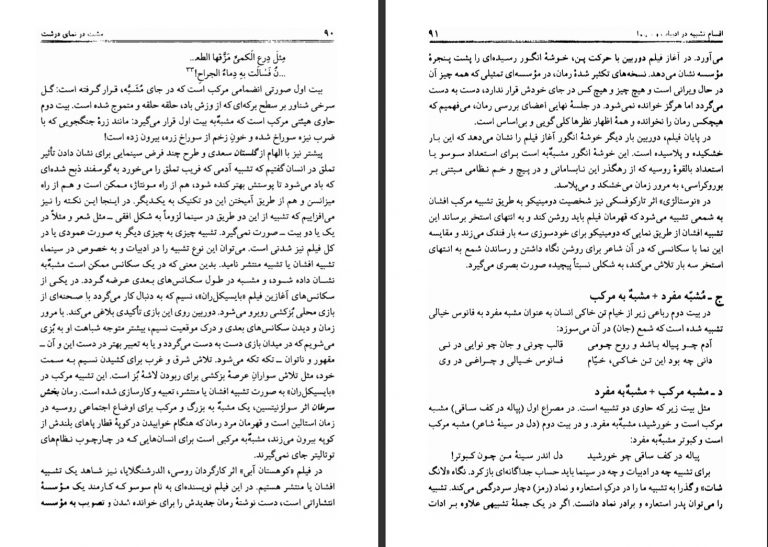 ۹۰ مشت در نمای درشت
مِثلَ دِرعِ الکَمیِّ مَزَّقها الطعـ...
...ـنُ فَسالَت بِهِ دِماءُ الجراحِ!۳۳
بیت اول صورتی انضمامی مرکب است که در جای مُشَبَّه، قرار گرفته است: گـل
سرخی شناور بر سطح برکه‌ای که از وزش باد، حلقه حلقه و متموج شده است. بیت دوم
حاوی هیئتی مرکب است که مشبهٌ‌به بیت اول قرار می‌گیرد: مانند زرهٔ جنگجویی که با
ضرب نیزه سوراخ شده و خونِ زخم از سوراخ زره، بیرون زده است!
پیشتر نیز با الهام از گلستان سعدی و طرح چند فرض سینمایی برای نشان دادن تأثیر
تملق در انسان گفتیم که تشبیه آدمی که فریب تملق را می‌خورد به گوسفند ذبح شده‌ای
که باد می‌شود تا پوستش بهتر کنده شود، هم از راه مـونتاژ، ممکن است و هـم از راه
میزانسن و هم از طریق آمیختن این دو تکنیک به یکدیگر. در اینجـا این نکته را نیز
می‌افزاییم که تشبیه از این دو طریق در سینما لزوماً به شکل افقی ــ مثل شعر و مثلاً در
یک یا دو بیت ــ صورت نمی‌گیرد. تشبیه چیزی به چیزی دیگر به صورت عمودی یا در
کل فیلم نیز شدنی است. می‌توان این نوع تشبیه را در ادبیات و به خصوص در سینما،
تشبیه افشان یا تشبیه منتشر نامید. بدین معنی که در یک سکانس ممکن است مشبهٌ‌به
نشان داده شـود، و مشـبه در طـول سکـانس‌های بـعدی عرضه گـردد. در یکـی از
سکانس‌های آغازین فیلم «بایسیکل‌ران»، نسیم که به دنبال کار می‌گردد با صحنه‌ای از
بازی محلی بُزکشی روبرو می‌شود. دوربین روی این بازی تأکیدی بلاغی می‌کند. با مرور
زمان و دیدن سکانس‌های بعدی و درک موقعیت نسیم، بیشتر متوجه شباهت او به بُزی
می‌شویم که در میدان بازی دست به دست می‌گردد و یا به تعبیر بهتر در دست این و آن ــ
مقهور و ناتوان ــ تکه تکه می‌شود. تلاش شرق و غرب برای کشیدن نسیم بـه سـمت
خود، مثل تلاش سواران عرصهٔ بزکشی برای ربودن لاشهٔ بُز است. این تشبیه مرکب در
«بایسیکل‌ران» به صورت تشبیه افشان یا منتشر، تعبیه و کارسازی شده است. رمان بخش
سرطان اثر سولژنیتسین، یک مشبهٌ به بزرگ و مرکب برای اوضاع اجتماعی روسیه در
زمان استالین است و قهرمان مرد رمان که هنگام خوابیدن در کوپهٔ قطار پاهای بلندش از
کوپه بیرون می‌زند، مشبهٌ‌به مرکبی است برای انسان‌هایی که در چارچوب نظام‌های
توتالیتر جای نمی‌گیرند.
در فیلم «کوهستان آبی» اثر کارگردان روسی، الدرشنگلایا، نیز شاهد یک تشـبیه
افشان یا منتشر هستیم. در این فیلم نویسنده‌ای به نام سوسو کـه کارمند یک مـؤسسهٔ
انتشاراتی است، دست نوشتهٔ رمان جدیدش را برای خوانده شدن و تصویب به مؤسسه
اقسام تشبیه در ادبیات و ۹۱
می‌آورد. در آغاز فیلم دوربین با حرکت پن، خوشهٔ انگـور رسیده‌ای را پشت پنـجرهٔ
مؤسسه نشان می‌دهد. نسخه‌های تکثیر شدهٔ رمان، در مؤسسه‌ای تمثیلی که همه چیز آن
در حال ویرانی است و هیچ چیز و هیچ کس در جای خودش قرار ندارد، دست به دست
می‌گردد اما هرگز خوانده نمی‌شود. در جلسهٔ نهایی اعضای بررسی رمان، می‌فهمیم که
هیچکس رمان را نخوانده و همهٔ اظهار نظرها کلی گویی و بی‌اساس است.
در پایان فیلم، دوربین بار دیگر خوشهٔ انگور آغاز فیلم را نشان می‌دهد که این بـار
خشکیده و پلاسیده است. این خوشهٔ انگور مشبهٌ‌به است بـرای اسـتعداد سـوسو یـا
استعداد بالقوهٔ روسیه که از رهگذر این نابسامانی و در پیچ و خـم نظامی مـبتنی بـر
بوروکراسی، به مرور زمان می‌خشکد و می‌پلاسد.
در «نوستالژی» اثر تارکوفسکی نیز شخصیت دومینیکو به طریق تشبیه مرکب افشان
به شمعی تشبیه می‌شود که قهرمان فیلم باید روشن کند و به انتهای استخر برساند این
تشبیه افشان از طریق نمایی که دومینیکو برای خودسوزی سه بار فندک می‌زند و مقایسه
این نما با سکانسی که در آن شاعر برای روشن نگاه داشتن و رساندن شمع به انـتهای
استخر سه بار تلاش می‌کند، به شکلی نسبتاً پیچیده صورت بصری می‌گیرد.
ج ـ مُشَبَّه مفرد + مشبهٌ به مرکب
در بیت دوم رباعی زیر از خیام تن خاکی انسان به عنوان مشبه مفرد به فانوس خیالی
تشبیه شده است که شمع (جان) در آن می‌سوزد:
آدم چـو پیاله بـاشد و روح چـومی قالب چونی و جان چو نوایی در نـی
دانی چه بود این تـن خـاکـی، خیّـام فـانوس خیـالی و چـراغـی در وی
د ـ مشبه مرکب + مشبهٌ‌به مفرد
مثل بیت زیر که حاوی دو تشبیه است. در مصراع اول (پیاله در کف ساقی) مشبه
مرکب است و خورشید، مشبهٌ‌به مفرد. و در بیت دوم (دل در سینهٔ شاعر) مشبه مرکب
است و کبوتر مشبهٌ‌به مفرد:
پیاله در کف ساقی چو خورشید دل اندر سینهٔ مـن چـون کبوتر!
برای تشبیه چه در ادبیات و چه در سینما باید حساب جداگانه‌ای باز کرد. نگاه «لانگ
شات» و گذرا به تشبیه ما را در درک استعاره و نماد (رمز) دچار سردرگمی می‌کند. تشبیه
را می‌توان پدر استعاره و برادر نماد دانست. اگر در یک جملهٔ تشبیهی علاوه بـر ادات